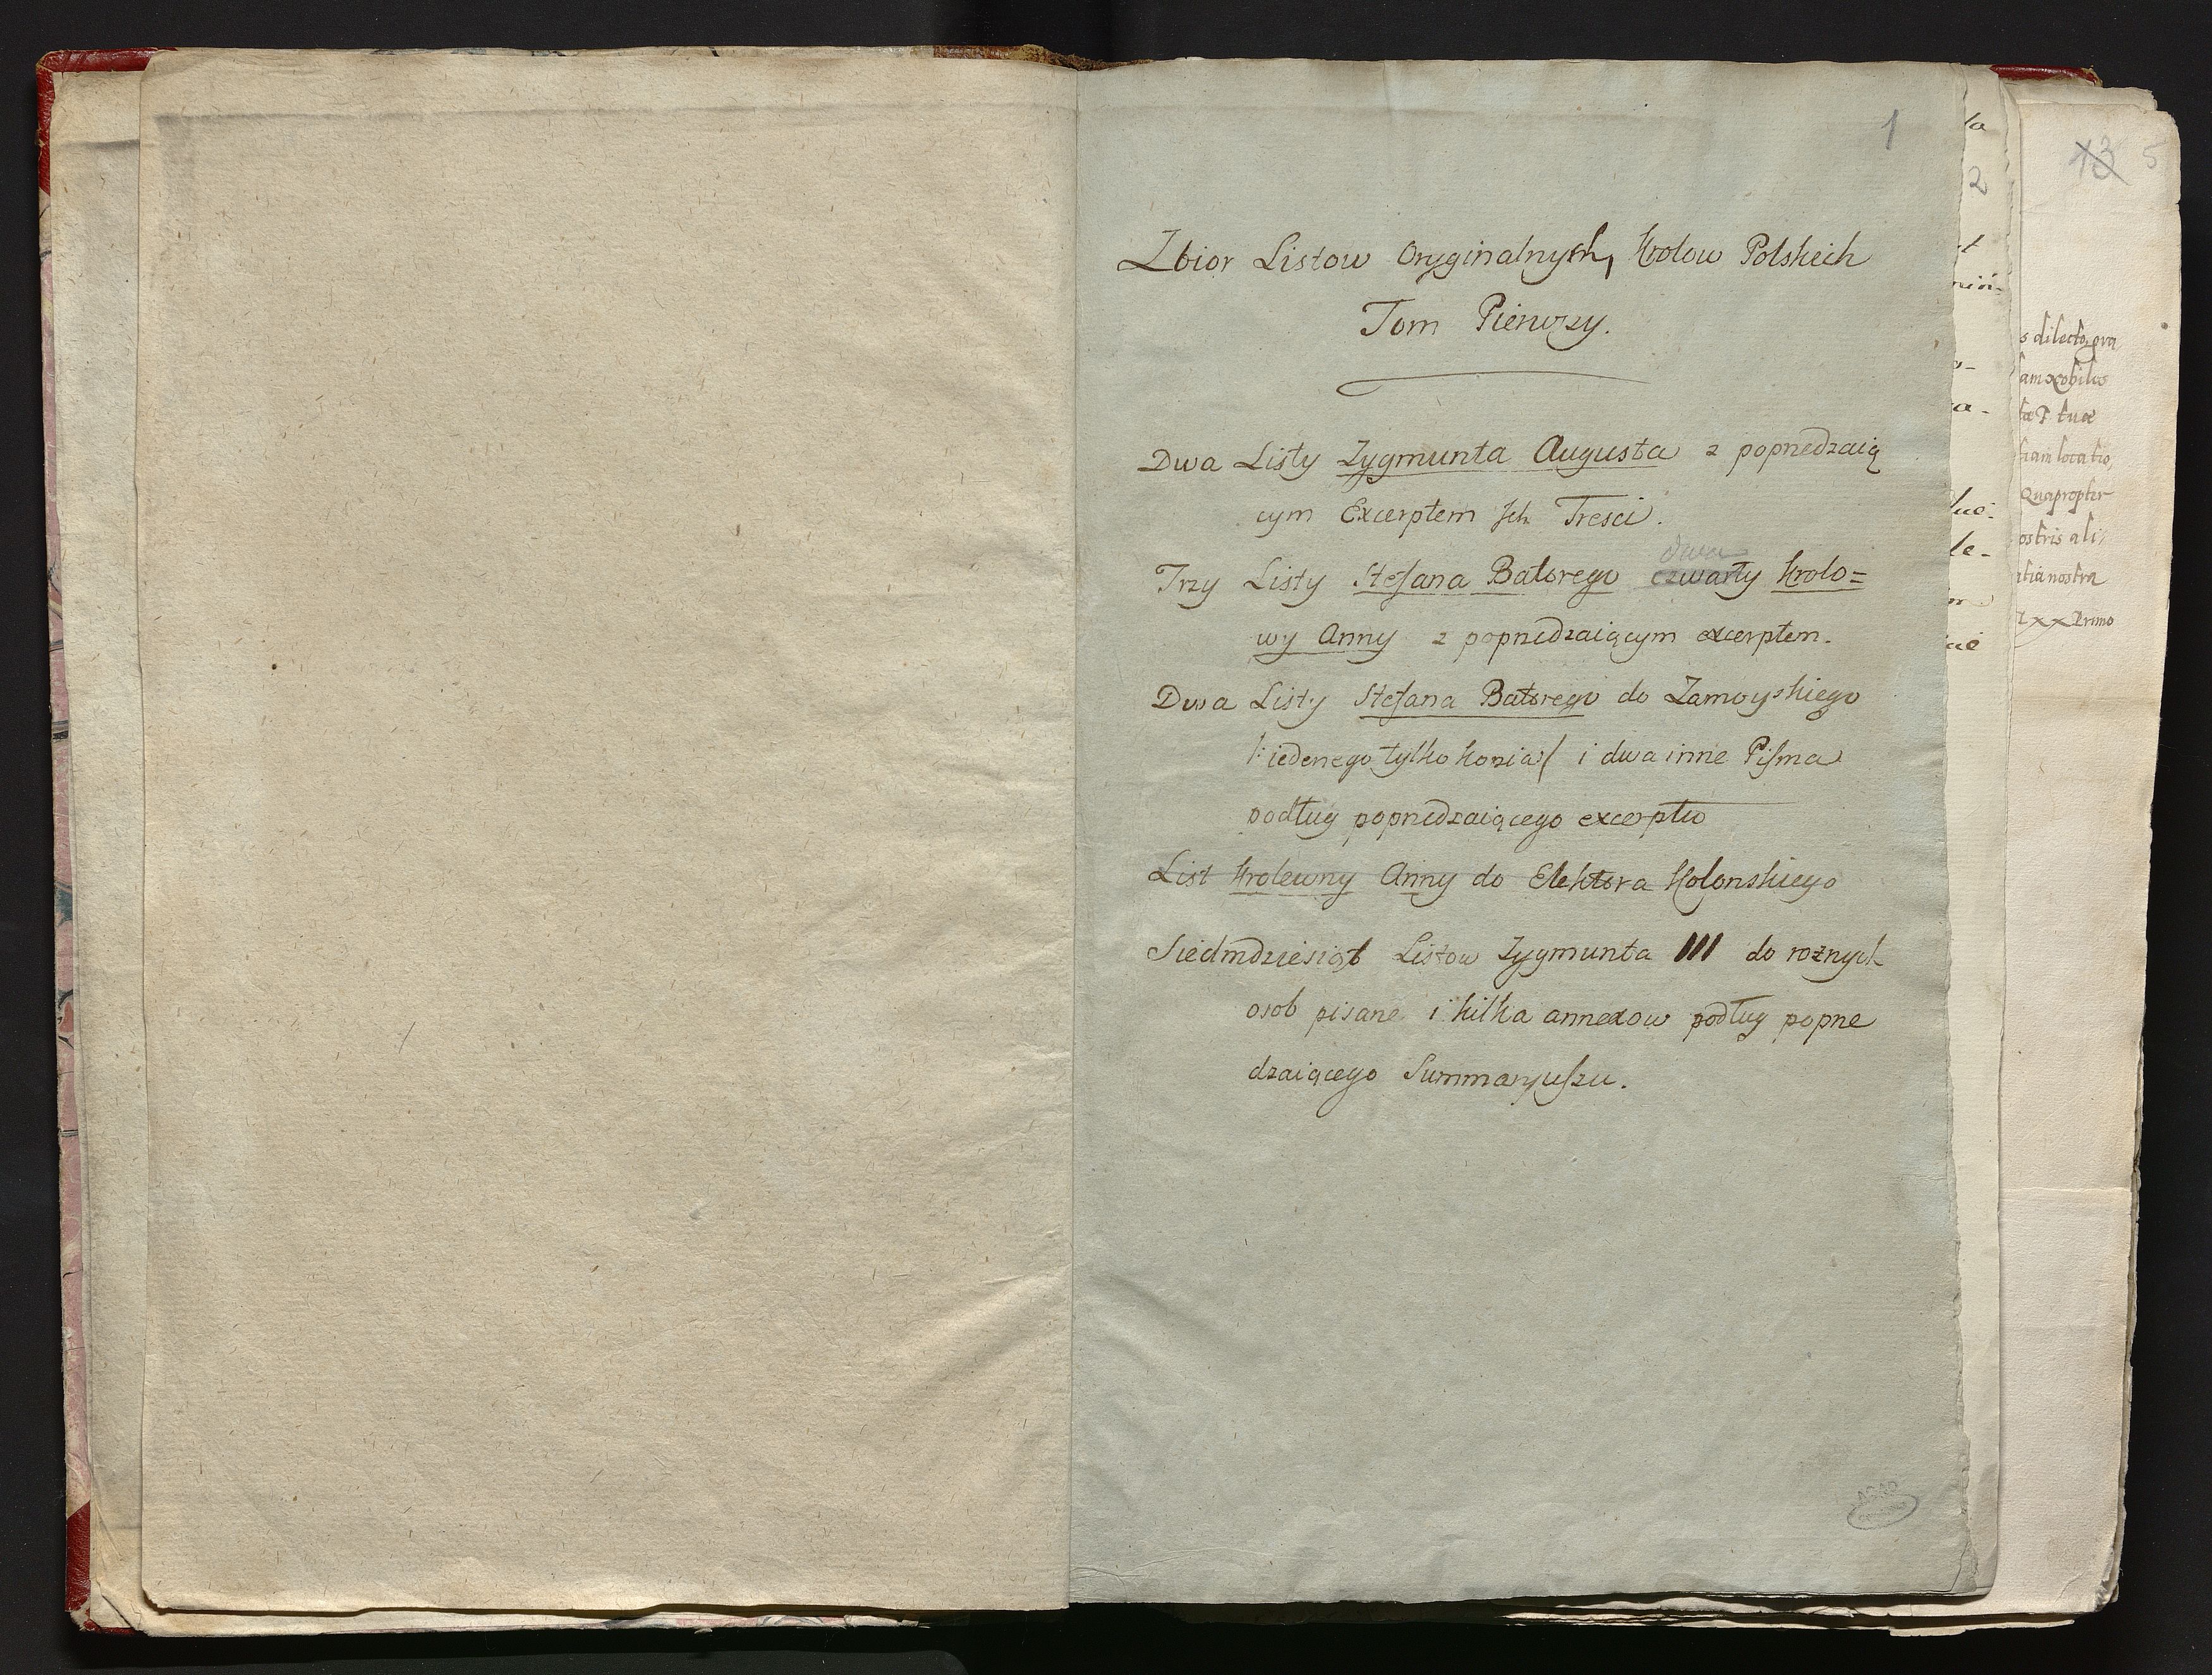 1
Zbior Listow Oryginalnych, Krolow Polskich
Tom Pierwszy.
Dwa Listy Zygmunta Augusta z poprzedzaią
cym Excerptem Ich Tresci.
dwa
Trzy Listy Stefana Batorego czwarty Krolo=
wy Anny z poprzedzaiącym excerptem.
Dwa Listy Stefana Batorego do Zamoyskiego
/: iedenego tylko konia/ i dwa inne Pisma
podług poprzedzaiącego excerptu
List Krolewny Anny do Elektora Kolonskiego
Siedmdziesiąt Listow Zygmunta III do roznych
osob pisane i kilka annexow podług poprze
dzaiącego Summaryuszu.
2
13 5
s dilecto gra
tuæ
Quapropter
ostris ali
tia nostra
AGAD